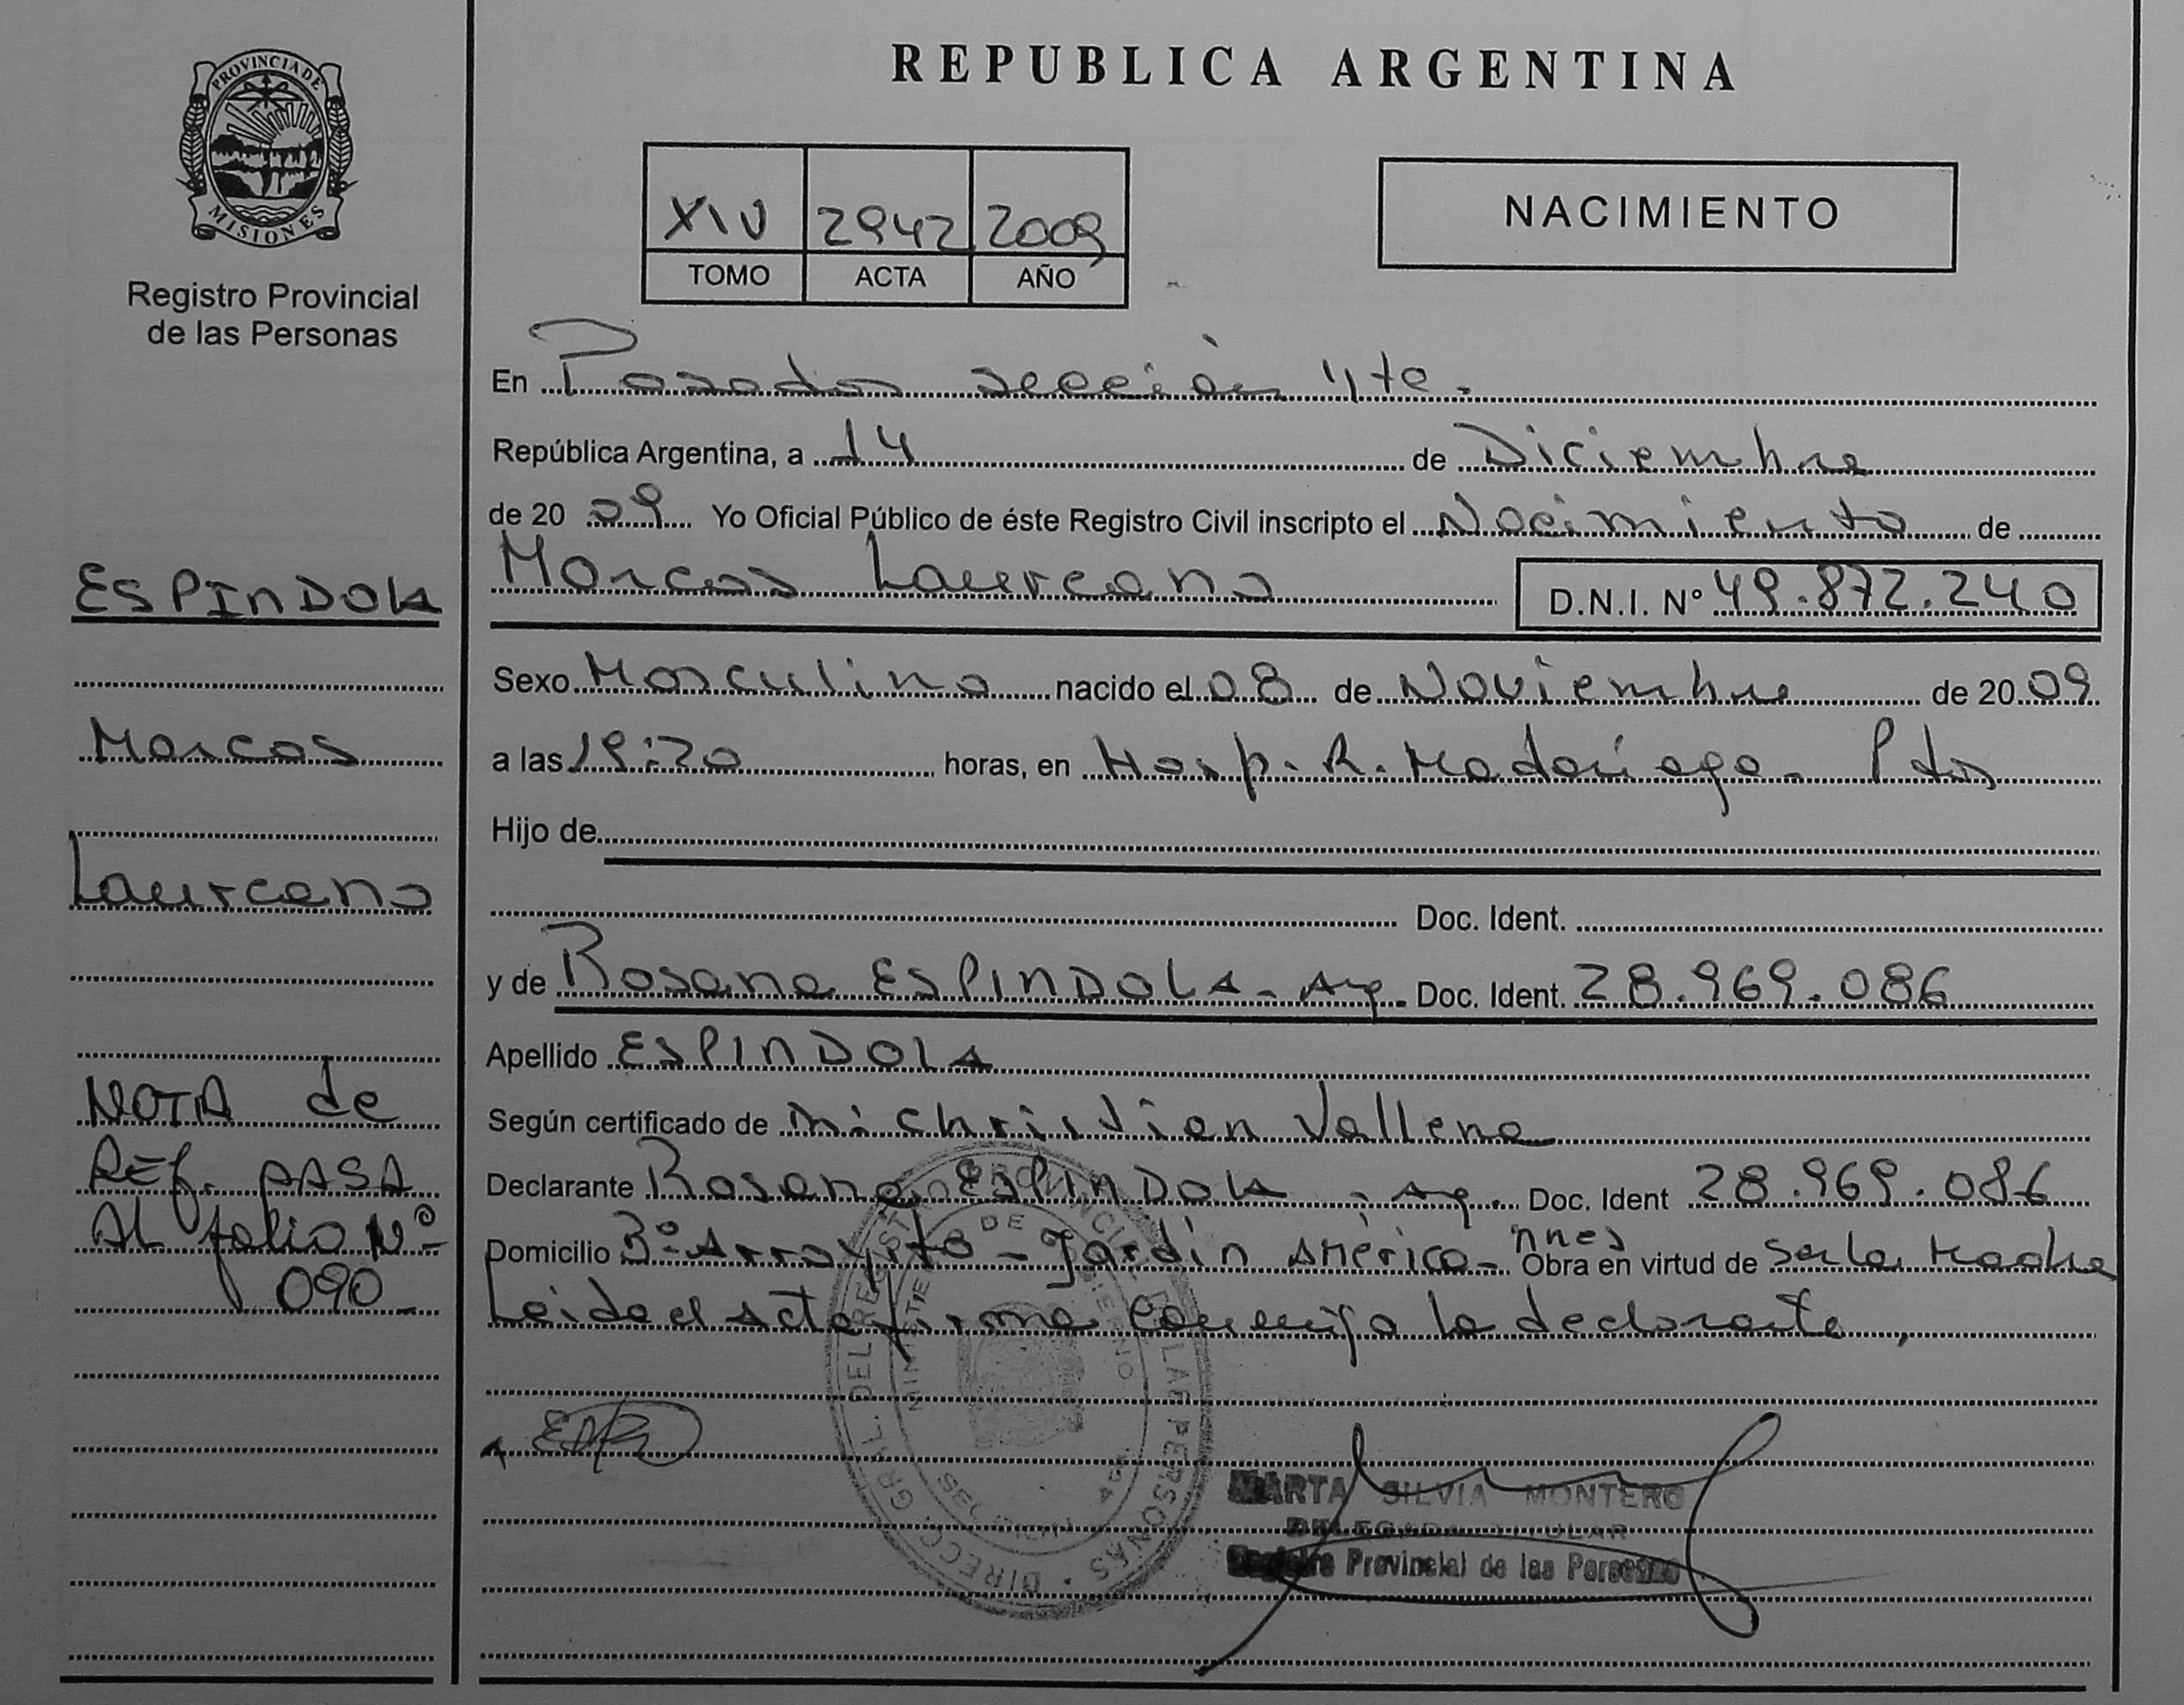 PROVINCIA DE
MISIONES
Registro Provincial
de las Personas
ESPINDOLA
Marcos
Laureano
NOTA de
REf. PASA
AL folio Nº
090
REPUBLICA ARGENTINA
XIV 2942 2009
TOMO ACTA AÑO
NACIMIENTO
En Posadas sección 4ta.
República Argentina, a 14 de Diciembre
de 20 09 Yo Oficial Público de éste Registro Civil inscripto el Nacimiento de
Marcos Laureano D.N.I. Nº 49.872.240
Sexo Masculino nacido el 08 de Noviembre de 20 09
a las 19:20 horas, en Hosp. R. Madariaga - Pdas
Hijo de
Doc. Ident.
y de Rosana ESPINDOLA - Arg. Doc. Ident. 28.969.086
Apellido ESPINDOLA
Según certificado de Christian Vallena
Declarante Rosana ESPINDOLA - Arg. Doc. Ident 28.969.086
Domicilio Bº Arroyito - Jardín América - Mnes Obra en virtud de Ser la Madre
Leida el acta firma conmigo la declarante,
MARTA SILVIA MONTERO
DELEGADA TITULAR
Registro Provincial de las Personas